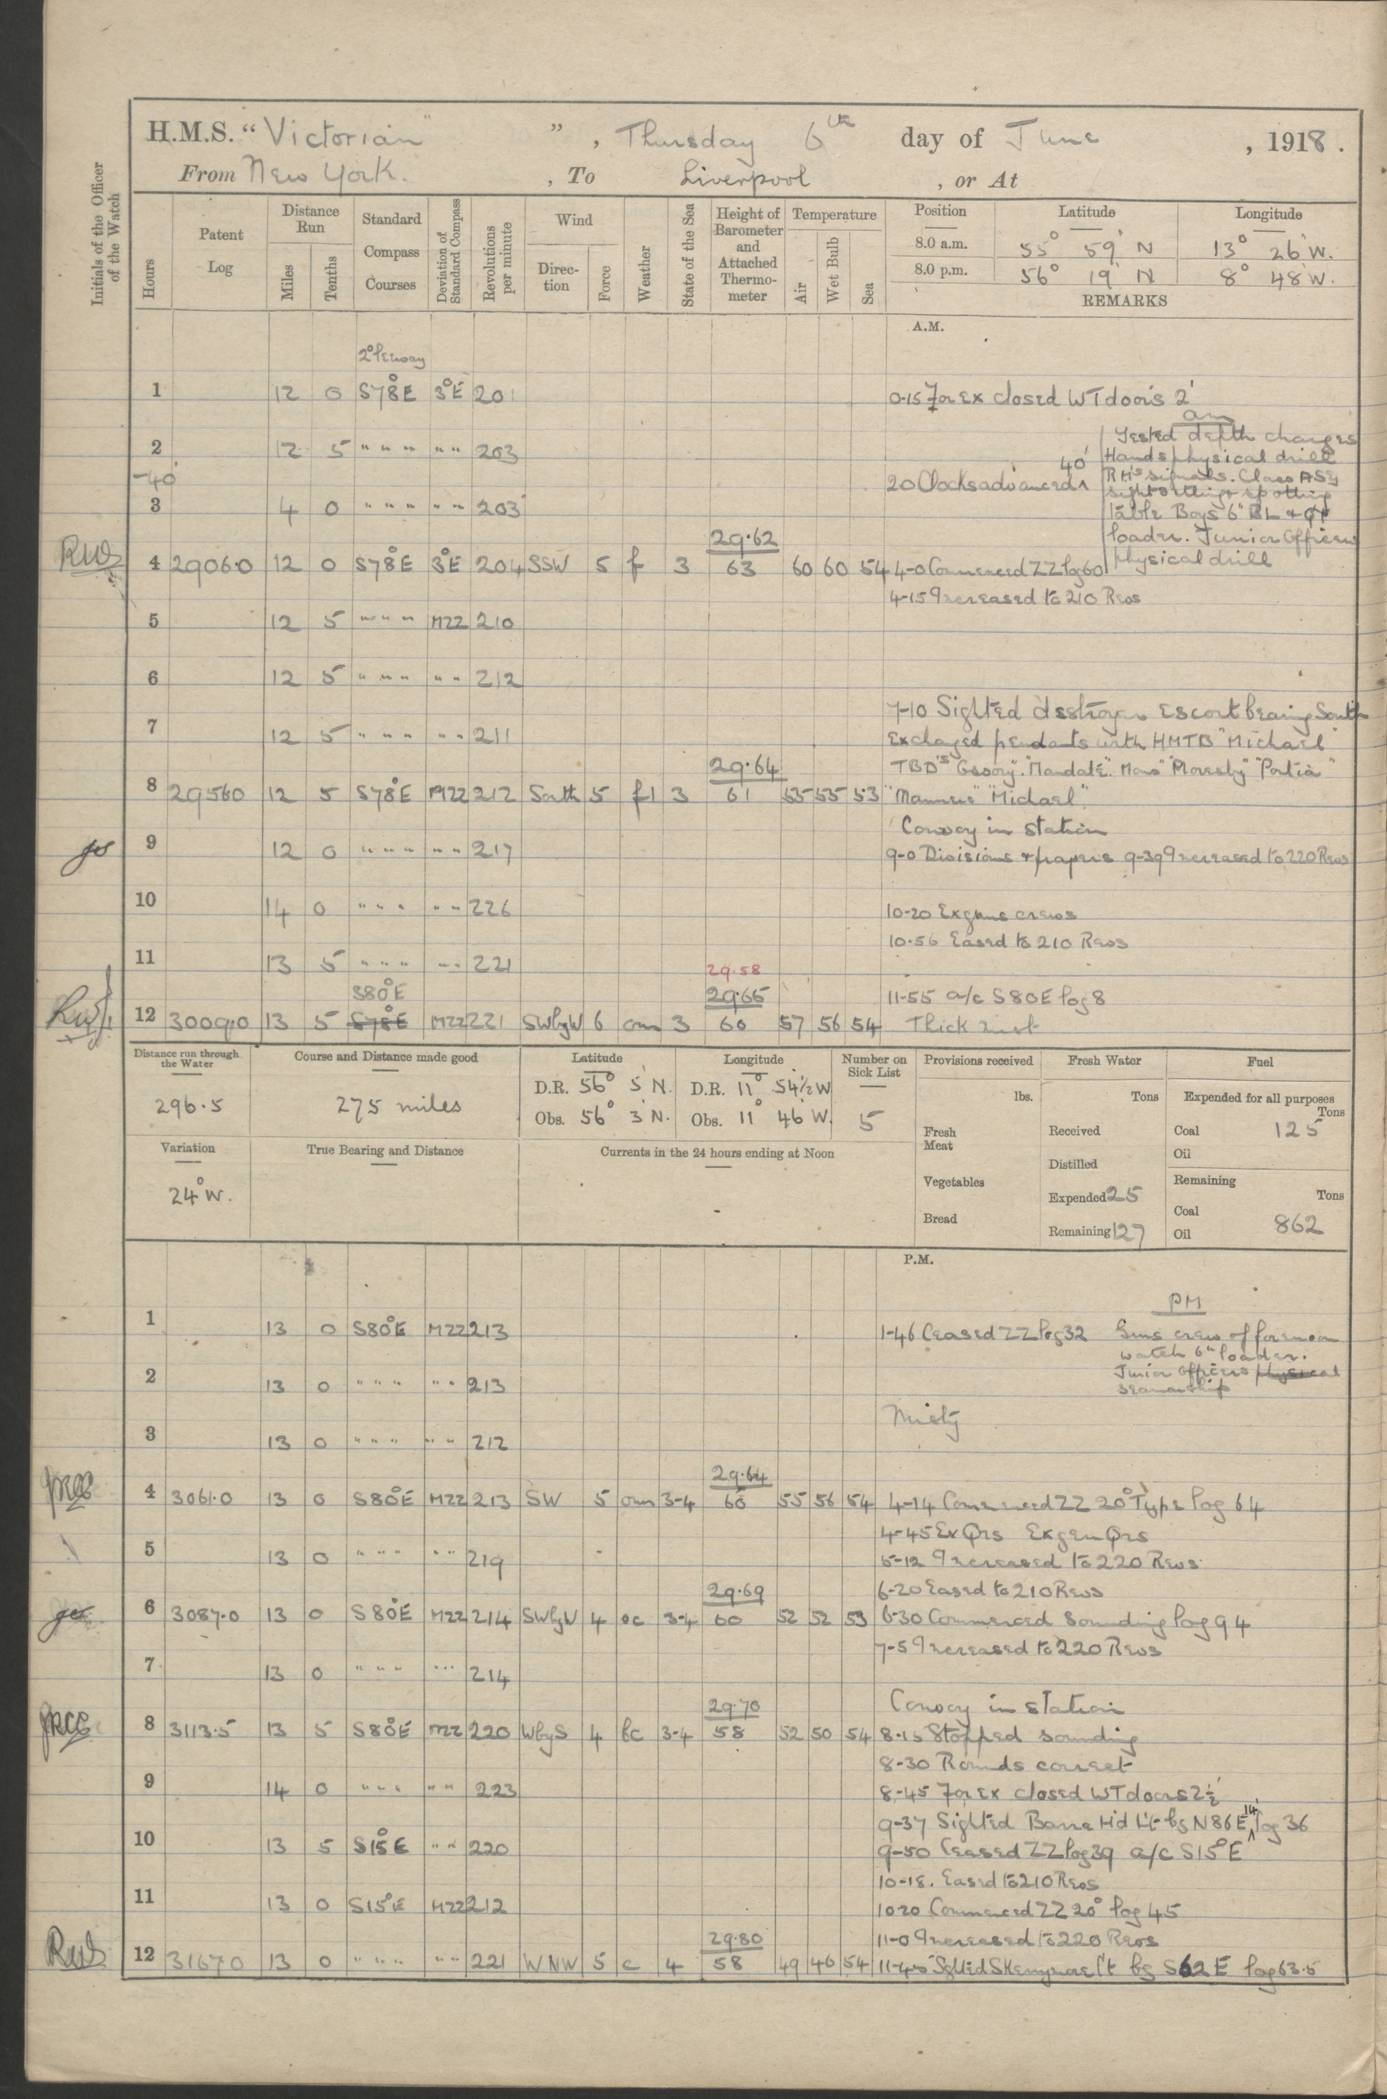 H.M.S. "Victorian" ", Thursday 6th day of June, 1918.
From New York. , To Liverpool , or At
Initials of the Officer of the Watch
Hours
Patent Log
Distance Run
Miles
Tenths
Standard Compass Courses
Deviation of Standard Compass
Revolutions per minute
Wind
Direction
Force
Weather
State of the Sea
Height of Barometer and Attached Thermometer
Temperature
Air
Wet Bulb
Sea
Position Latitude Longitude
8.0 a.m. 55° 59' N 13° 26' W.
8.0 p.m. 56° 19 N 8° 48' W.
REMARKS
A.M.
2° leeway
1 12 0 S78°E 3°E 201 0-15 For Ex closed WT doors 2'
am
Tested depth charges
2 12 5 " " " " " 203 Hands physical drill
-40' 20 Clocks advanced 40' RH's signals. Class
sightsetting & spotting
3 4 0 " " " " " 203 table Boys 6" BL &
loader. Junior Officers
29.62
4 29060 12 0 S78°E 3°E 204 SSW 5 f 3 63 60 60 54 4-0 Commenced ZZ log 60 physical drill
4-15 Increased to 210 Revs
5 12 5 " " " MZZ 210
6 12 5 " " " " " 212
7-10 Sighted destroyer escort bearing South
7 12 5 " " " " " 211 Exchaged pendants with HMTB "Michael"
29.64 TBD's "Mandate" "Moresby" "Portia"
8 29560 12 5 S78°E MZZ 212 South 5 f1 3 61 55 55 53 "Manners" "Michael".
Convoy in station
9 12 0 " " " " " 217 9-0 Divisions & prayers 9-39 Increased to 220 Revs
10 14 0 " " " " " 226 10-20 Ex guns crews
10.56 Eased to 210 Revs
11 13 5 " " " " " 221
29.58
S80°E 29.65 11-55 a/c S80E log 8
12 30090 13 5 S78°E MZZ 221 SWbyW 6 om 3 60 57 56 54 Thick mist
Distance run through the Water
296.5
Course and Distance made good
275 miles
Latitude
D.R. 56° 5' N.
Obs. 56° 3' N.
Longitude
D.R. 11° 54½ W
Obs. 11° 46' W.
Number on Sick List
5
Provisions received
lbs.
Fresh Meat
Vegetables
Bread
Fresh Water
Tons
Received
Distilled
Expended 25
Remaining 127
Fuel
Expended for all purposes
Tons
Coal 125
Oil
Remaining
Tons
Coal
Oil 862
Variation
24°W.
True Bearing and Distance
Currents in the 24 hours ending at Noon
P.M.
PM
1 13 0 S80°E MZZ 213 1-46 Ceased ZZ log 32 Guns crew of forenoon
watch 6" loader.
2 13 0 " " " " " 213 Junior officers physical
seamanship
Misty
3 13 0 " " " " " 212
29.64
4 3061.0 13 0 S80°E MZZ 213 SW 5 om 3-4 60 55 56 54 4-14 Commenced ZZ 20° Type log 64
4-45 Ex Qrs Ex gen Qrs
5 13 0 " " " " " 219 5-12 Increased to 220 Revs.
29.69 6-20 Eased to 210 Revs
6 3087.0 13 0 S80°E MZZ 214 SWbyW 4 oc 3-4 60 52 52 53 6-30 Commenced sounding log 94
7-5 Increased to 220 Revs
7 13 0 " " " " " 214
29.70 Convoy in station
8 3113.5 13 5 S80°E MZZ 220 WbyS 4 bc 3-4 58 52 50 54 8.15 Stopped sounding
8-30 Rounds correct
9 14 0 " " " " " 223 8-45 For Ex closed WT doors 2½'
9-37 Sighted Barra Hd Lt bg N86E 14' log 36
10 13 5 S15°E " " 220 9-50 Ceased ZZ log 39 a/c S15°E
10-18. Eased to 210 Revs
11 13 0 S15°E MZZ 212 1020 Commenced ZZ 20° log 45
29.80 11-0 Increased to 220 Revs
12 31670 13 0 " " " " " 221 WNW 5 c 4 58 49 46 54 11-45 Sighted Skerryvore Lt bg S62E log 63.5